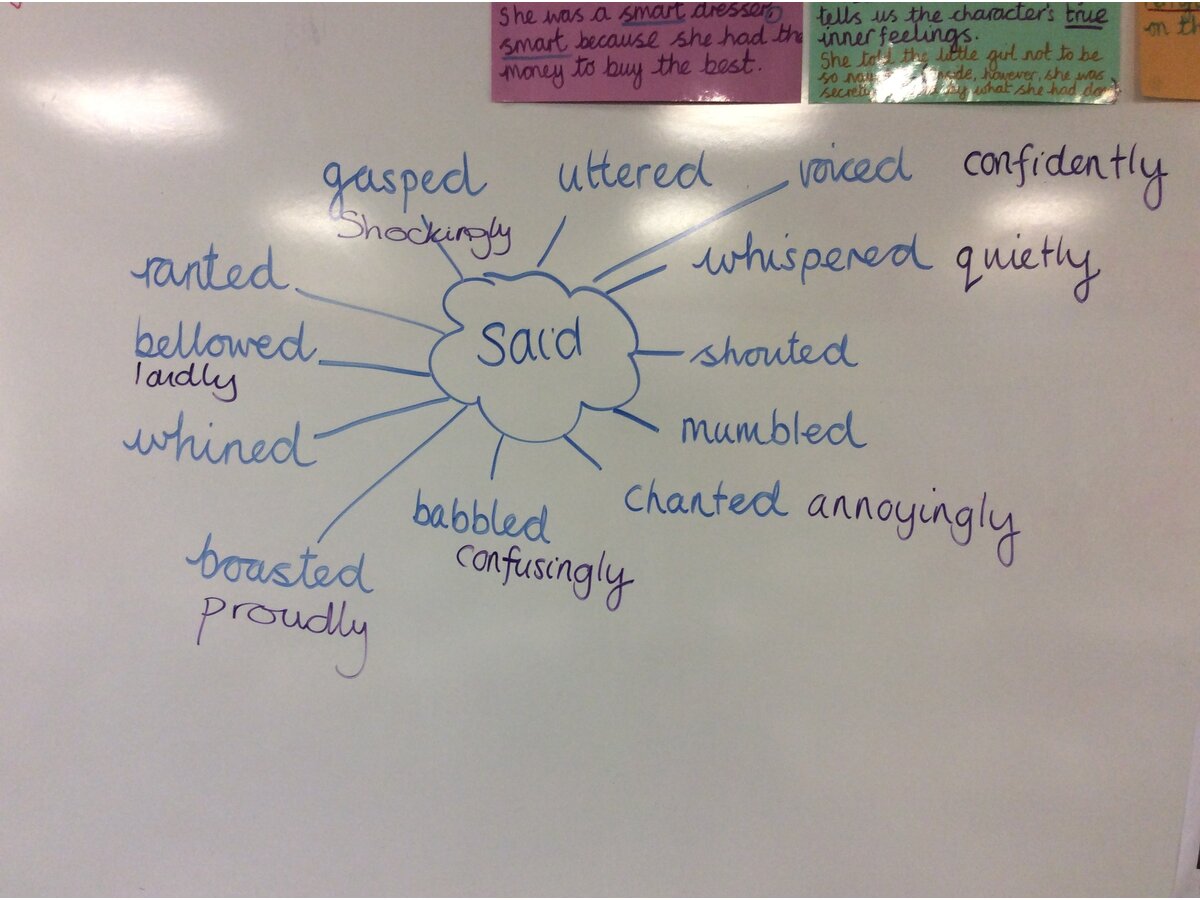 She was a smart dresser,
smart because she had the
money to buy the best.
tells us the character's true
inner feelings.
She told the little girl not to be
so however, she was
what she had
on th
gasped
Shockingly
uttered
voiced confidently
whispered quietly
ranted
said
bellowed
loudly
shouted
whined
mumbled
chanted annoyingly
babbled
confusingly
boasted
proudly